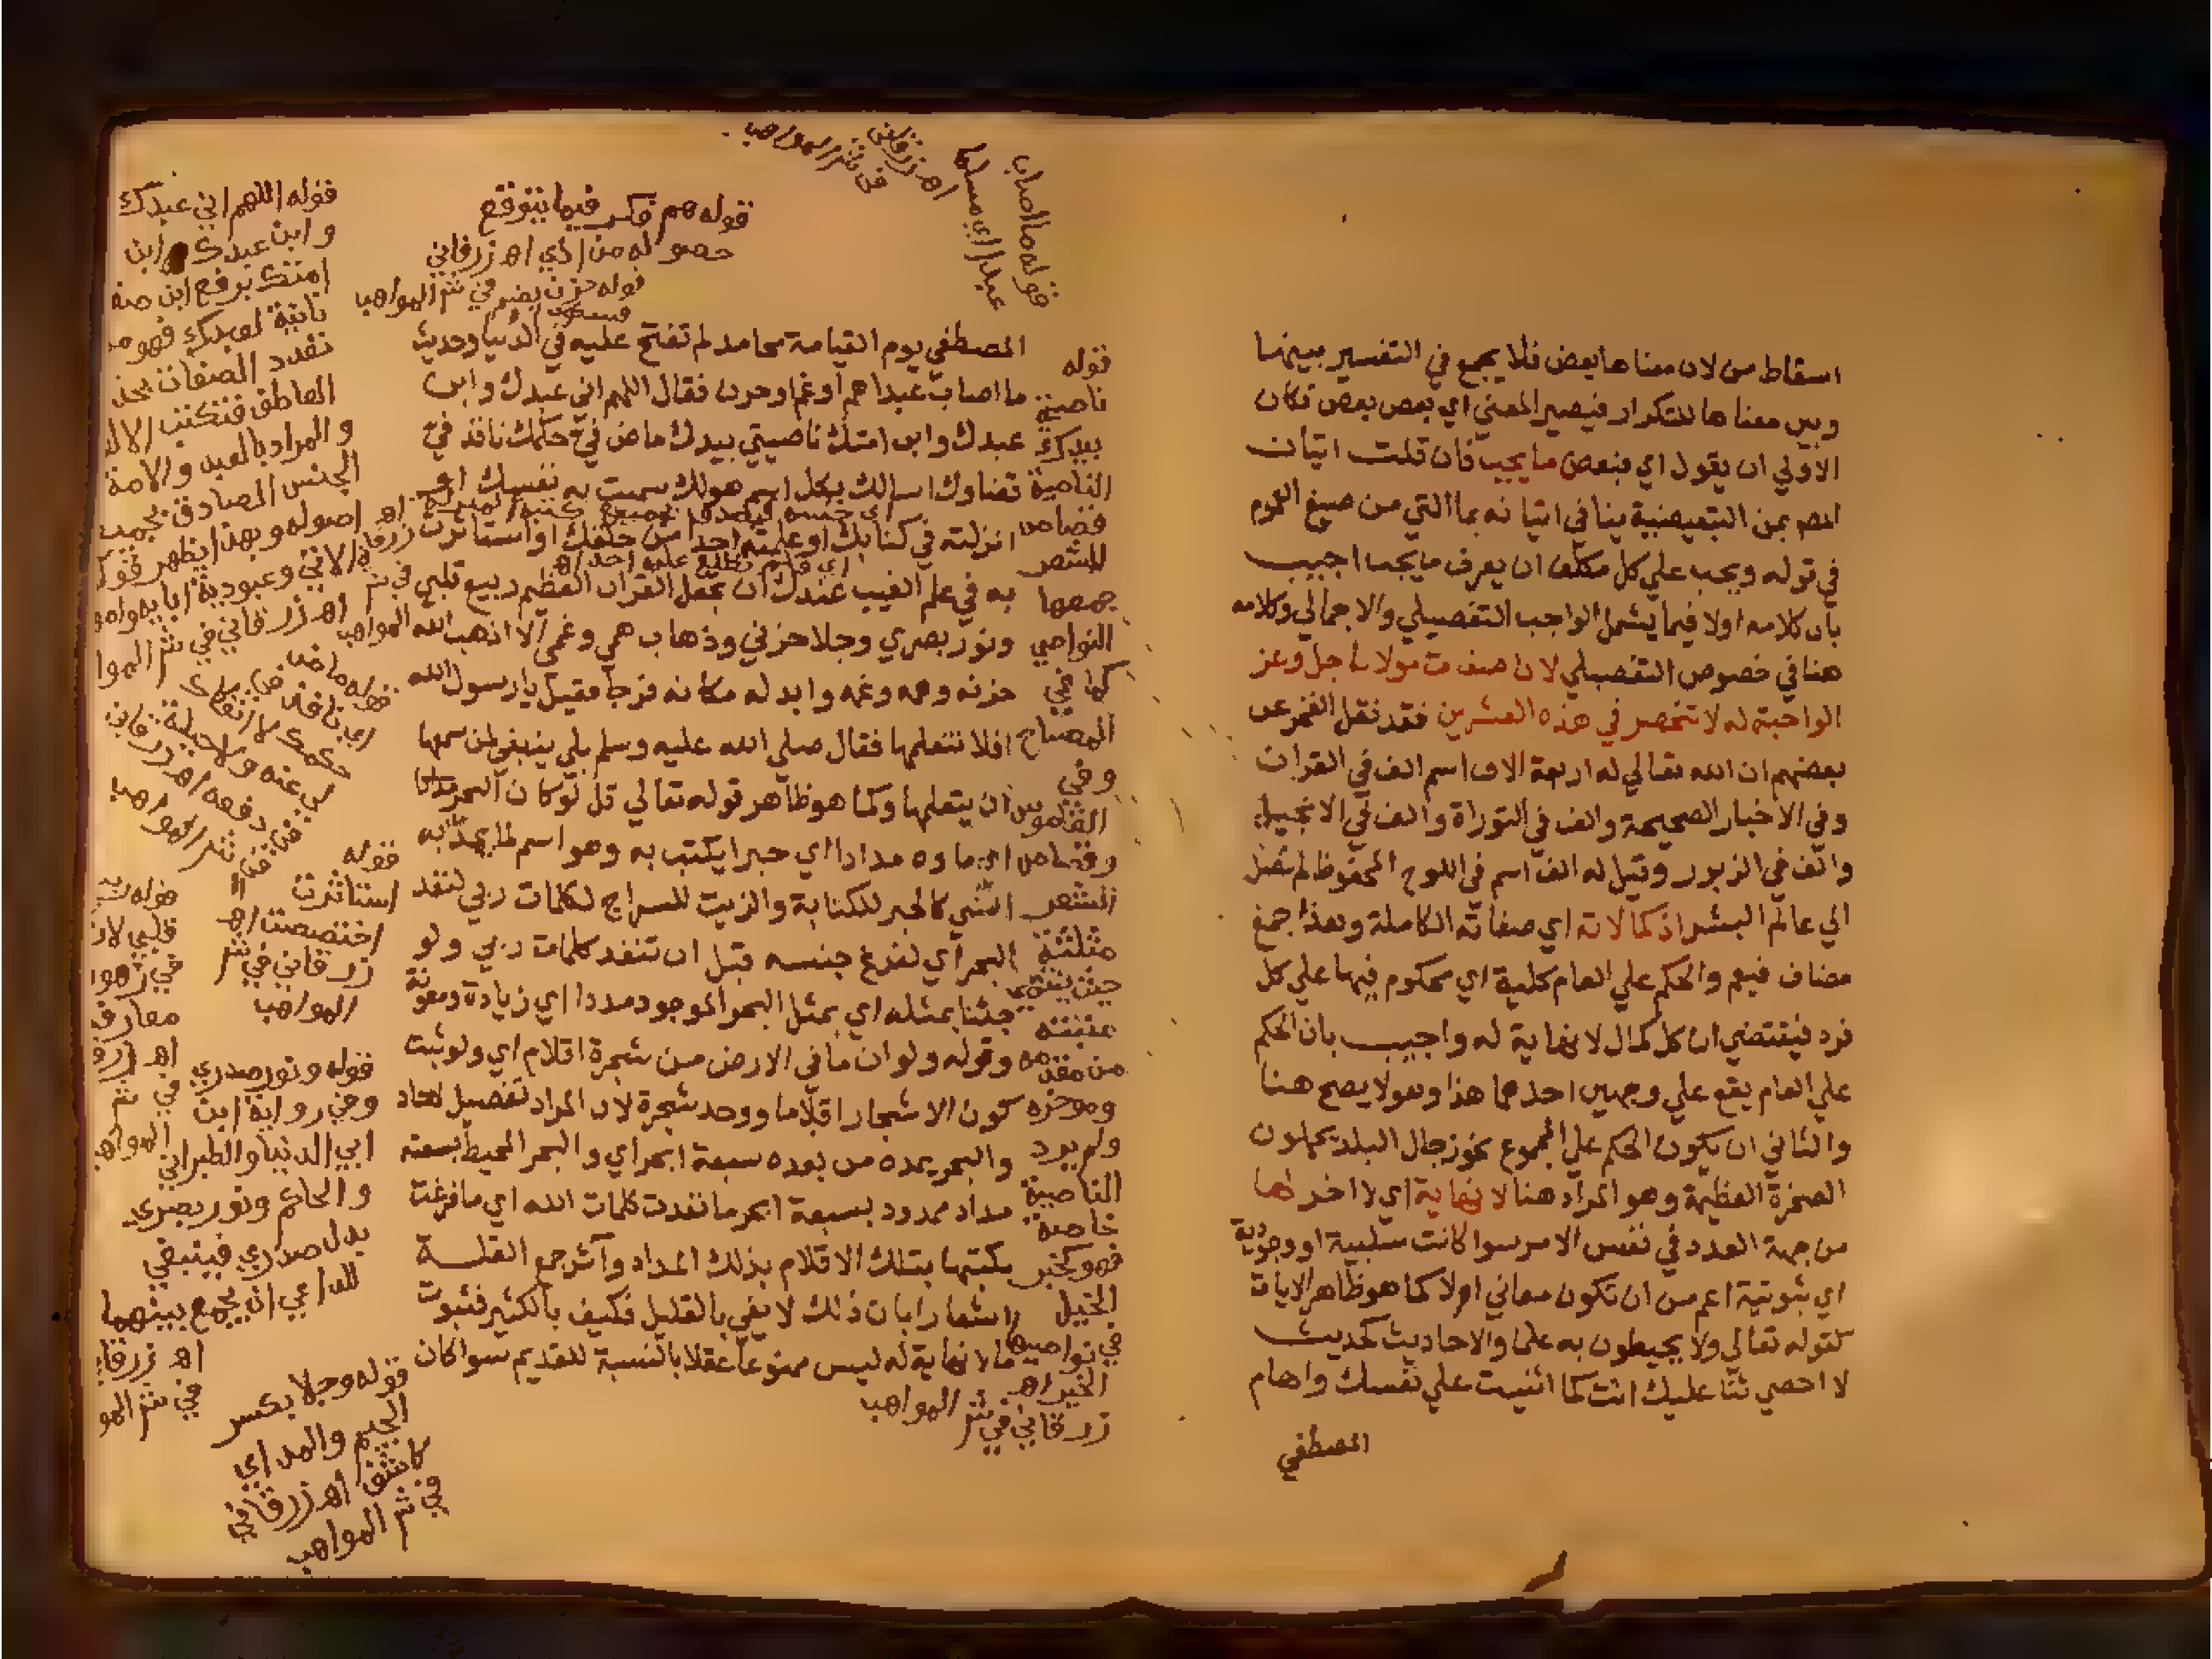 اسقاط من لان معناها بعض فلا يجمع في التفسير بينها
وبين معناها للتكرار فيصير المعني اي بعض بعض فكان
الاولي ان يقول اي فبعض ما يجب فان قلت اتيان
المص بمن التبعيضية ينافي اتيانه بما التي من صيغ العموم
في قوله ويجب علي كل مكلف ان يعرف ما يجب اجيب
بان كلامه اولا فيما يشمل الواجب التفصيلي والاجمالي وكلامه
هنا في خصوص التفصيلي لان صفات مولانا جل وعز
الواجبة له لا تنحصر في هذه العشرين فقد نقل الفخر عن
بعضهم ان الله تعالي له اربعة الاف اسم الف في القران
وفي الاخبار الصحيحة والف في التوراة والف في الانجيل
والف في الزبور وقيل له الف اسم في اللوح المحفوظ لم تصل
الي عالم البشر اذ كمالاته اي صفاته الكاملة وهذا جمع
مضاف فيعم والحكم علي العام كلية اي محكوم فيها علي كل
فرد فيقتضي ان كل كمال لا نهاية له واجيب بان الحكم
علي العام يقع علي وجهين احدهما هذا وهو لا يصح هنا
والثاني ان يكون الحكم علي المجموع نحو رجال البلد يحملون
الصخرة العظيمة وهو المراد هنا لا نهاية اي لا اخر لها
من جهة العدد في نفس الامر سوا كانت سلبية او وجودية
اي ثبوتية اعم من ان تكون معاني اولا كما هو ظاهر الايات
كقوله تعالي ولا يحيطون به علما والاحاديث كحديث
لا احصي ثنا عليك انت كما اثنيت علي نفسك والهام
المصطفي
المصطفي يوم القيامة محامد لم تفتح عليه في الدنيا وحديث
ما اصاب عبدا هم او غم او حزن فقال اللهم اني عبدك وابن
عبدك وابن امتك ناصيتي بيدك ماض في حكمك نافذ في
قضاوك اسالك بكل اسم هو لك سميت به نفسك او
انزلته في كتابك او علمته احدا من خلقك او استاثرت
به في علم الغيب عندك ان تجعل القران العظيم ربيع قلبي
ونور بصري وجلا حزني وذهاب همي وغمي الا اذهب الله
حزنه وهمه وغمه وابدله مكانه فرجا فقيل يا رسول الله
افلا نتعلمها فقال صلي الله عليه وسلم بلي ينبغي لمن سمعها
ان يتعلمها وكما هو ظاهر قوله تعالي قل لو كان البحر
اي ماوه مدادا اي حبرا يكتب به وهو اسم لما يمد به
الشي كالحبر للكتابة والزيت للسراج لكلمات ربي لنفد
البحر اي لفرغ جنسه قبل ان تنفد كلمات ربي ولو
جئنا بمثله اي بمثل البحر الموجود مددا اي زيادة ومعونة
وقوله ولو ان ما في الارض من شجرة اقلام اي ولو ثبت
كون الاشجار اقلاما ووحد شجرة لان المراد تفصيل الاحاد
والبحر يمده من بعده سبعة ابحر اي والبحر المحيط بسعته
مداد ممدود بسبعة ابحر ما نفدت كلمات الله اي ما فرغت
بكتبها بتلك الاقلام بذلك المداد وآثر جمع القلة
اشعارا بان ذلك لا يفي بالقليل فكيف بالكثير فثبوت
ما لا نهاية له ليس ممنوعا عقلا بالنسبة للقديم سوا كان
قوله ما اصاب
عبدا اي مسلما
اهـ زرقاني
في شر المواهب
قوله هم فكر فيما يتوقع
حصوله من اذي اهـ زرقاني
في شر المواهب
قوله
ناصيتي
بيدك
الناصية
قصاص
الشعر
جمعها
النواصي
كما في
المصباح
وفي
القاموس
وقصاص
الشعر
مثلثة
حيث ينتهي
منبته
من مقدمه
وموخره
ولم يرد
الناصية
خاصة
فهو كخبر
الخيل
في نواصيها
الخير اهـ
زرقاني في شر المواهب
قوله اللهم اني عبدك
وابن عبدك وابن
امتك برفع ابن صفة
ثانية لعبدك فهو من
تعدد الصفات بحذف
العاطف فتكتب الالف
والمراد بالعبد والامة
الجنس الصادق بجميع
اصوله وبهذا يظهر
اهـ زرقاني في شر المواهب
قوله ماض
اي نافذ في
حكمك لا انفكاك
لي عنه ولا حيلة
دفعه اهـ زرقاني
في شر المواهب
قوله
استاثرت
اختصصت اهـ
زرقاني في شر
المواهب
قوله ونور صدري
وفي رواية ابن
ابي الدنيا والطبراني
والحاكم ونور بصري
بدل صدري فينبغي
للداعي ان يجمع بينهما
اهـ زرقاني
في شر المواهب
قوله وجلا بكسر
الجيم والمد اي
كاشف اهـ زرقاني
في شر المواهب